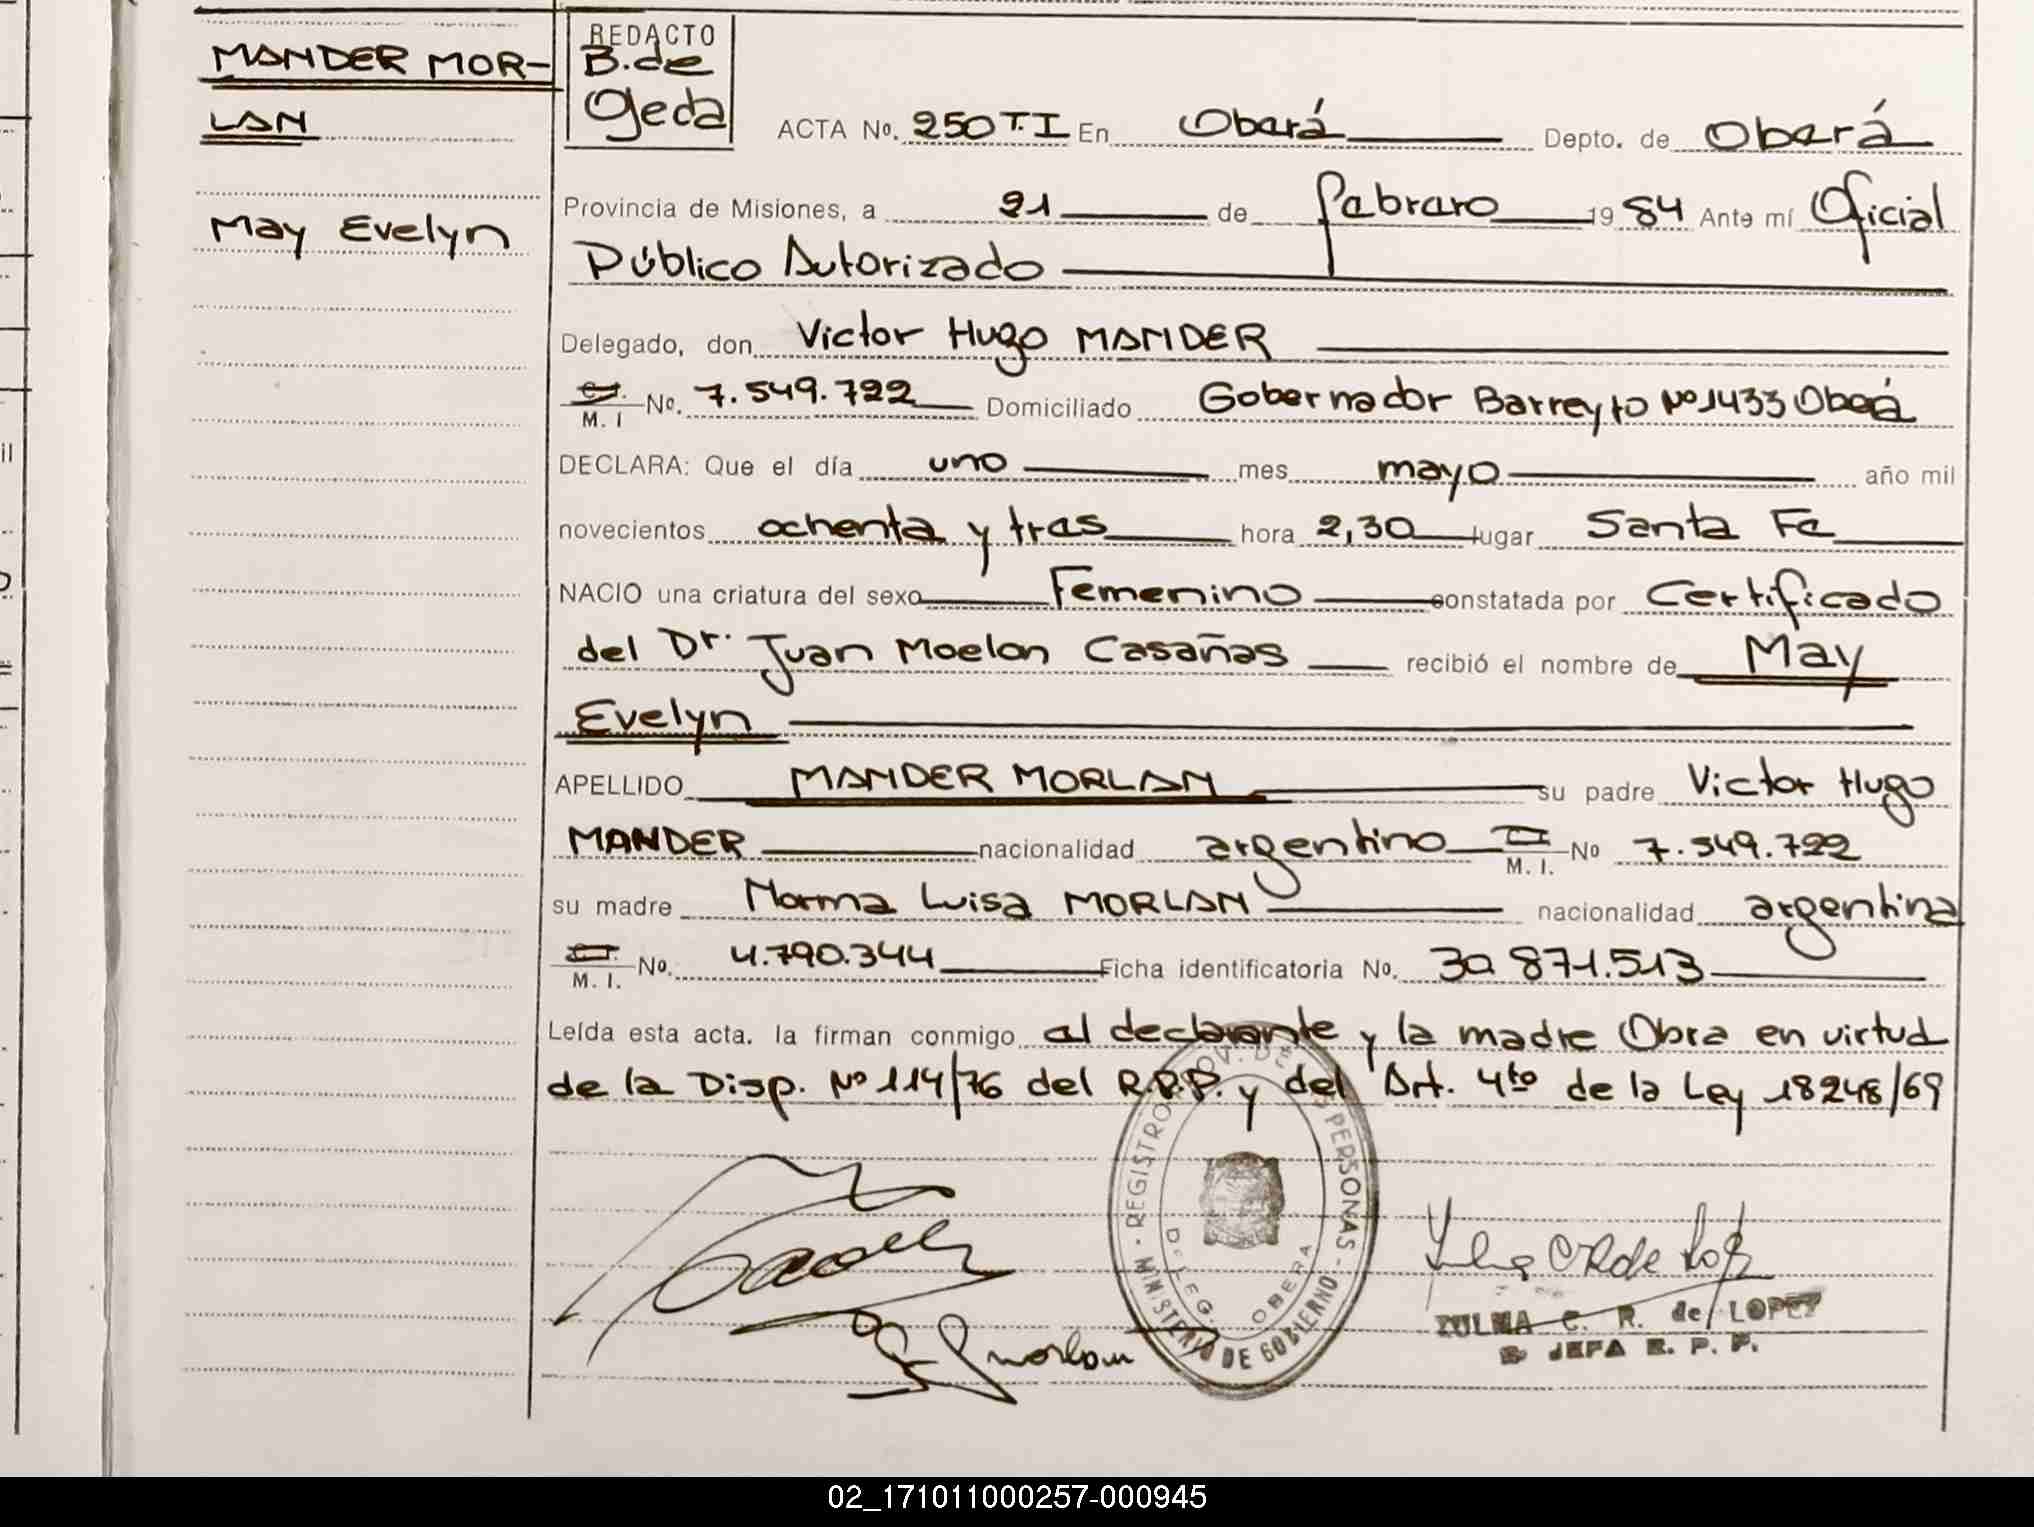 MANDER MOR-
LAN
May Evelyn
REDACTO
B. de
Ojeda
ACTA No. 250 T.I En Oberá Depto. de Oberá
Provincia de Misiones, a 21 de febrero 1984 Ante mí Oficial
Público Autorizado
Delegado, don Victor Hugo MANDER
M. I No. 7.549.722 Domiciliado Gobernador Barreyro Nº 1433 Oberá
DECLARA: Que el día uno mes mayo año mil
novecientos ochenta y tres hora 2,30 lugar Santa Fe
NACIO una criatura del sexo Femenino constatada por Certificado
del Dr. Juan Casañas recibió el nombre de May
Evelyn
APELLIDO MANDER MORLAN su padre Victor Hugo
MANDER nacionalidad argentino M. I. No 7.549.722
su madre Norma Luisa MORLAN nacionalidad argentina
M. I. No. 4.790.344 Ficha identificatoria No. 30.871.513
Leída esta acta. la firman conmigo el declarante y la madre Obra en virtud
de la Disp. Nº 114/76 del R.P.P. y del Art. 4to de la Ley 18248/69
REGISTRO PROV. DE LAS PERSONAS - MINISTERIO DE GOBIERNO
DELEG. OBERA
Morlan
ZULMA C. R. de LOPEZ
JEFA R. P. P.
02_171011000257-000945